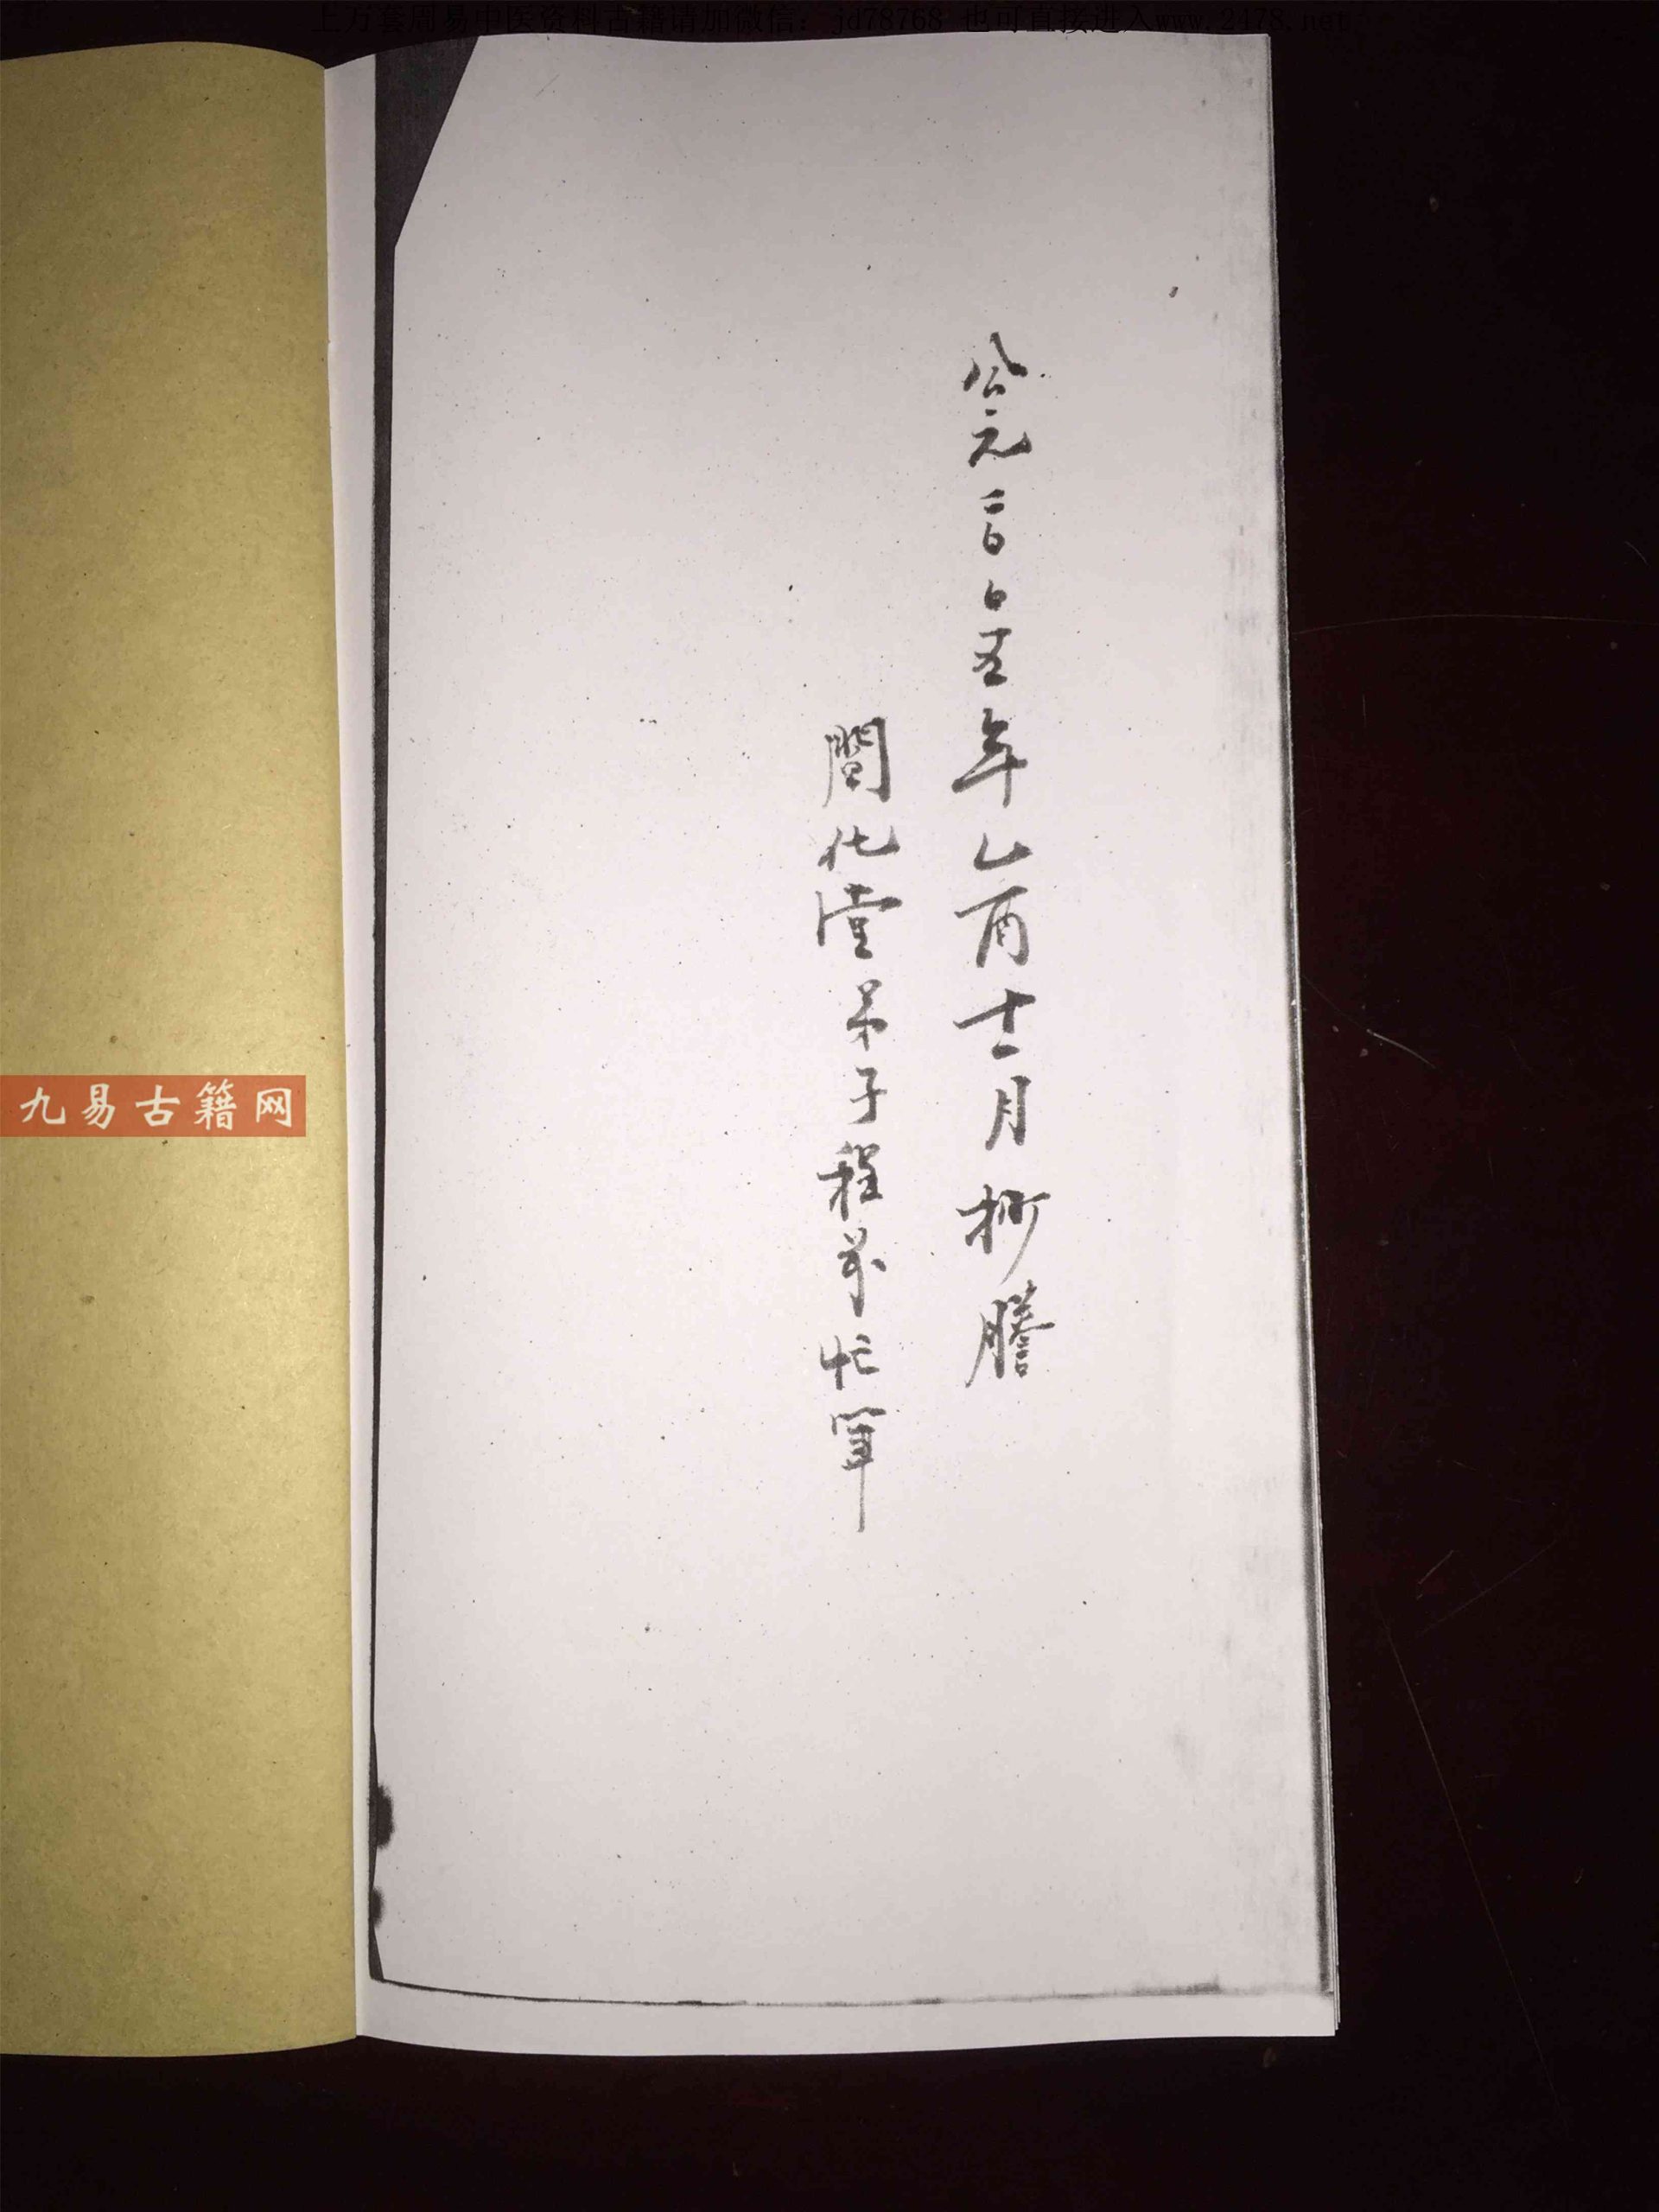 上万套周易中医资料古籍请加微信：jd78768 也可直接进入www.2478.net
公元二〇〇五年乙酉十一月抄謄
閤化堂弟子程 忙筆
九易古籍网